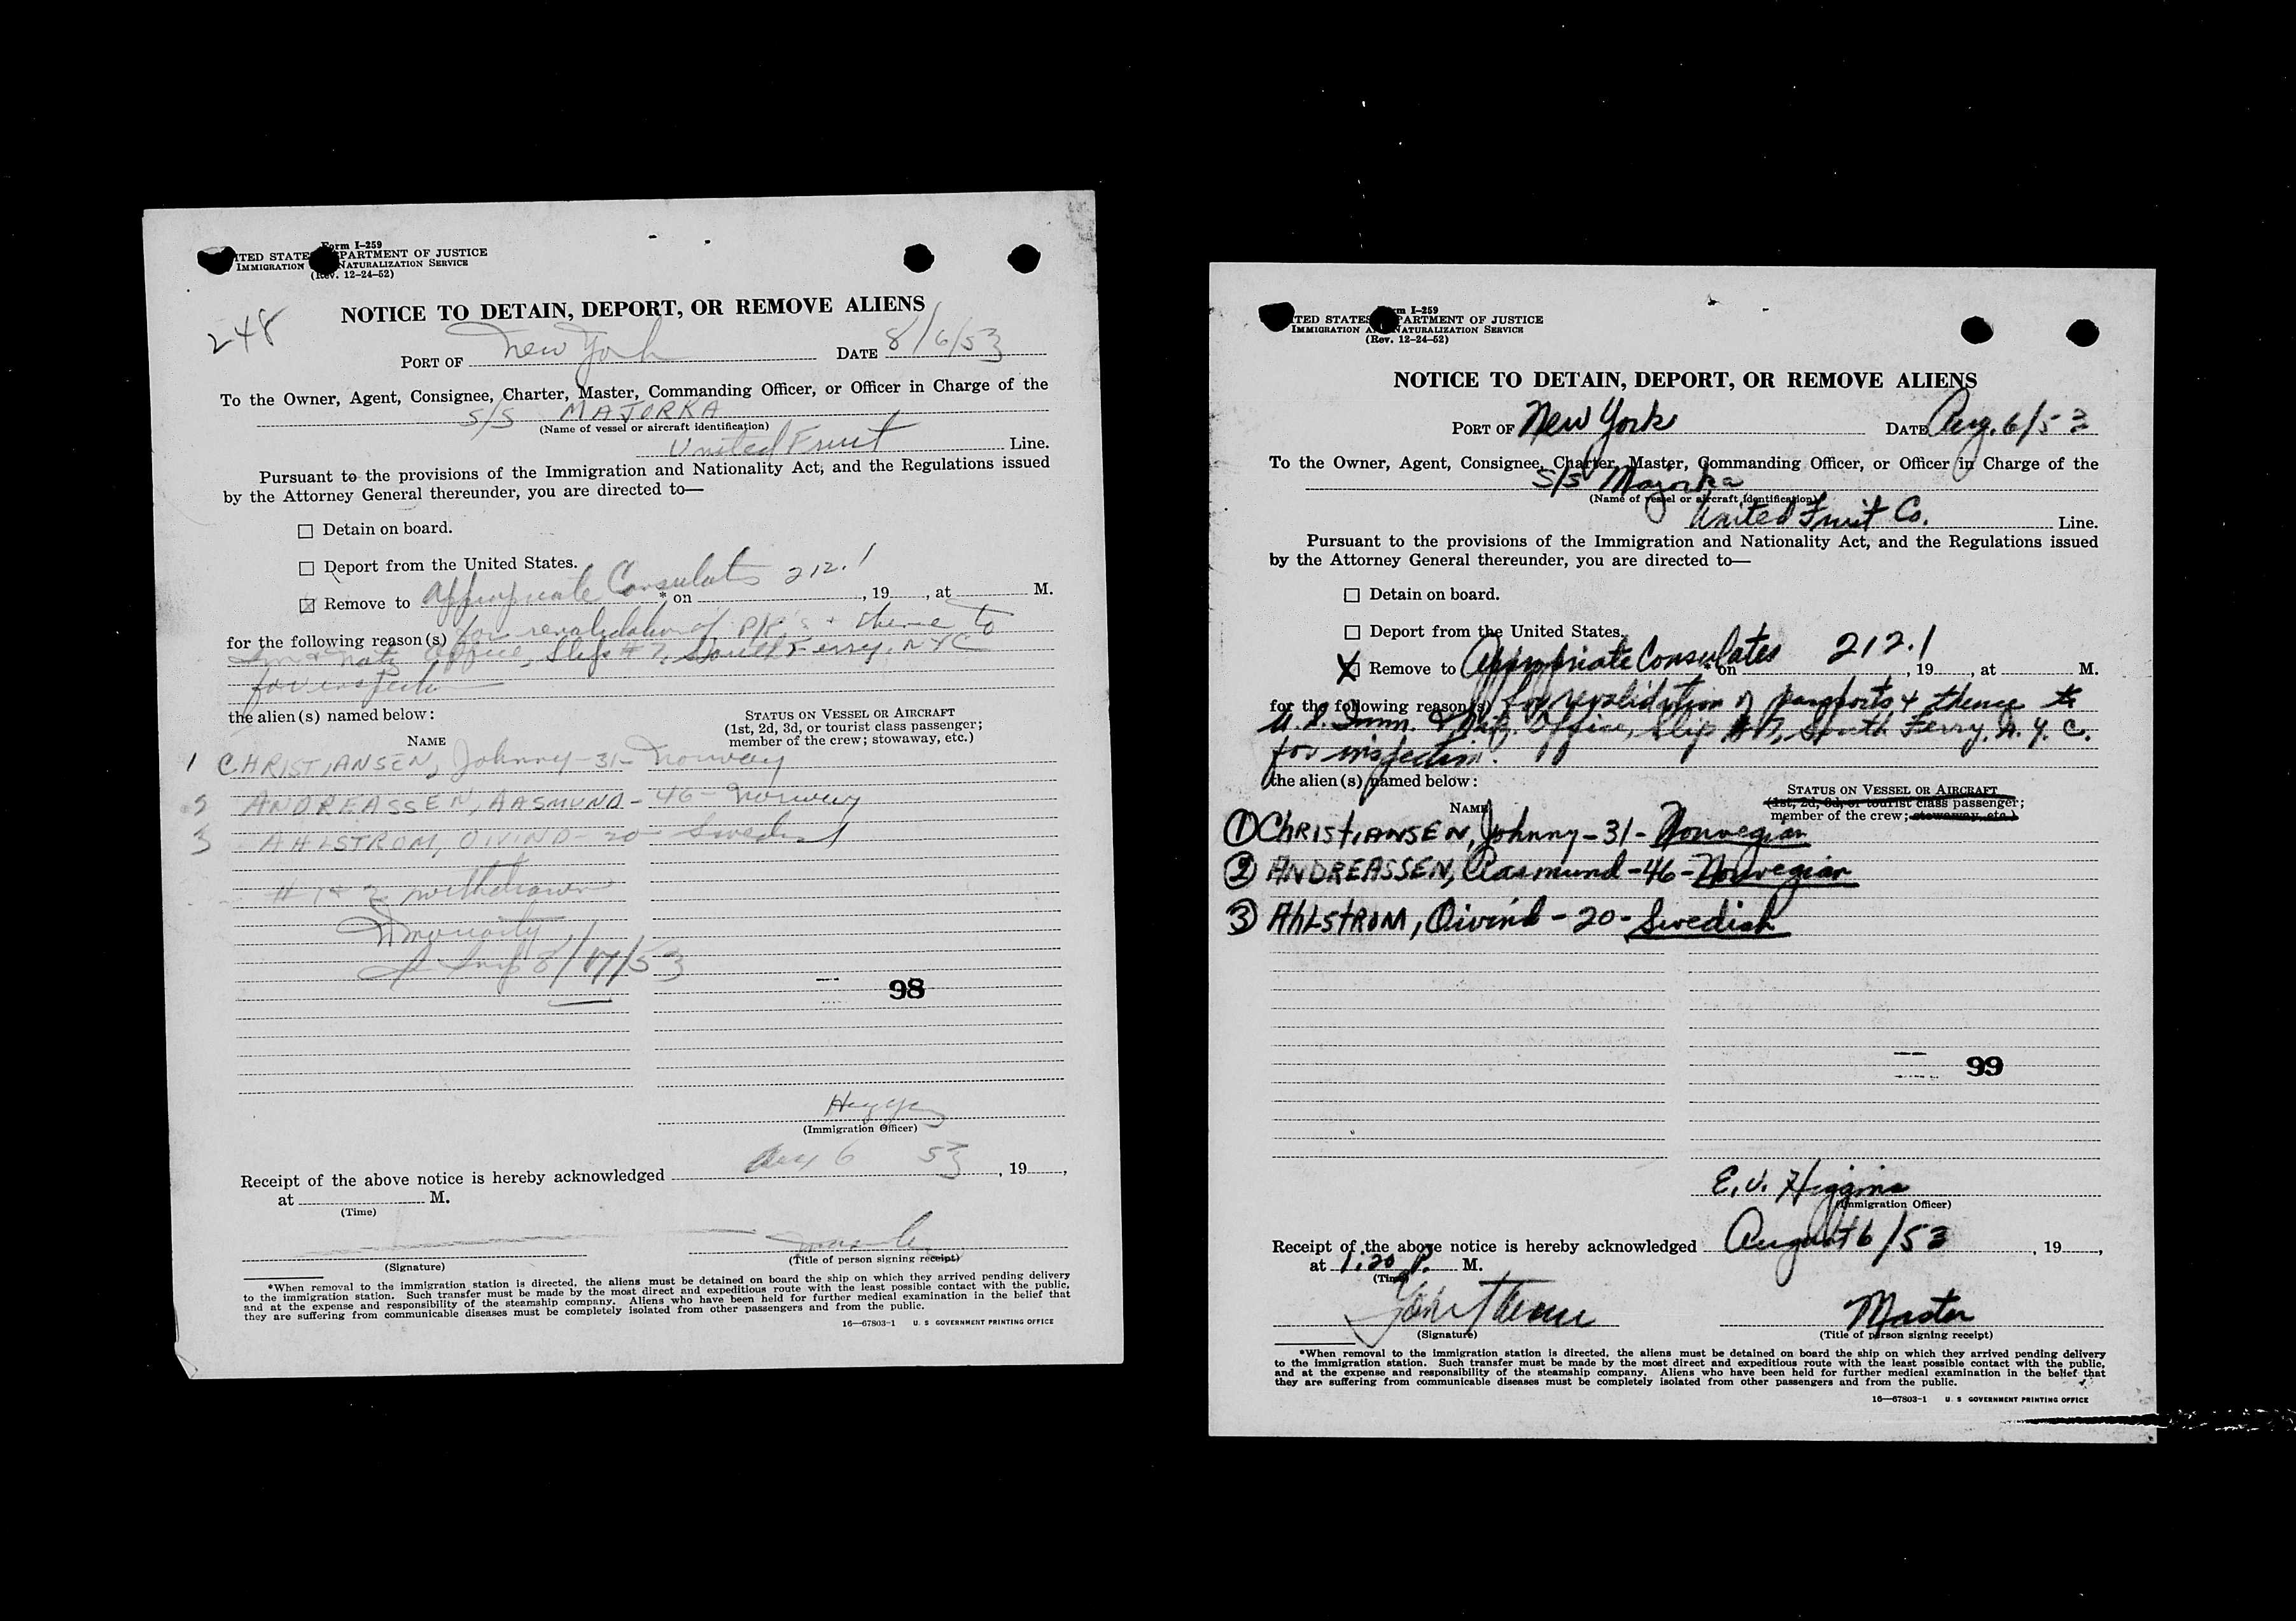 Form I-259
ITED STATE PARTMENT OF JUSTICE
IMMIGRATION NATURALIZATION SERVICE
(Rev. 12-24-52)
248
NOTICE TO DETAIN, DEPORT, OR REMOVE ALIENS
PORT OF New York DATE 8/6/53
To the Owner, Agent, Consignee, Charter, Master, Commanding Officer, or Officer in Charge of the
S/S MAJORKA
(Name of vessel or aircraft identification)
United Fruit Line.
Pursuant to the provisions of the Immigration and Nationality Act, and the Regulations issued
by the Attorney General thereunder, you are directed to—
☐ Detain on board.
☐ Deport from the United States.
☒ Remove to Appropriate Consulates 212.1 * on , 19 , at M.
for the following reason(s) for revalidation of P/P's + thence to
Imm & Natz Office, Slip #7, South Ferry, NYC
for inspection
the alien(s) named below:
NAME
STATUS ON VESSEL OR AIRCRAFT
(1st, 2d, 3d, or tourist class passenger;
member of the crew; stowaway, etc.)
1 CHRISTIANSEN, Johnny - 31 - Norway
2 ANDREASSEN, AASMUND - 46 - Norway
3 AHLSTROM, OIVIND - 20 - Swedish
# 1 & 2 withdrawn
8/17/53
98
(Immigration Officer)
Receipt of the above notice is hereby acknowledged Aug 6 53 , 19 ,
at M.
(Time)
(Signature)
(Title of person signing receipt)
*When removal to the immigration station is directed, the aliens must be detained on board the ship on which they arrived pending delivery
to the immigration station. Such transfer must be made by the most direct and expeditious route with the least possible contact with the public,
and at the expense and responsibility of the steamship company. Aliens who have been held for further medical examination in the belief that
they are suffering from communicable diseases must be completely isolated from other passengers and from the public.
16—67803-1 U. S GOVERNMENT PRINTING OFFICE
m I-259
TED STATES PARTMENT OF JUSTICE
IMMIGRATION A NATURALIZATION SERVICE
(Rev. 12-24-52)
NOTICE TO DETAIN, DEPORT, OR REMOVE ALIENS
PORT OF New York DATE Aug. 6/53
To the Owner, Agent, Consignee, Charter, Master, Commanding Officer, or Officer in Charge of the
S/S Majorka
(Name of vessel or aircraft identification)
United Fruit Co. Line.
Pursuant to the provisions of the Immigration and Nationality Act, and the Regulations issued
by the Attorney General thereunder, you are directed to—
☐ Detain on board.
☐ Deport from the United States.
☒ Remove to Appropriate Consulates 212.1 * on , 19 , at M.
for the following reason(s) for revalidation of passports & thence to
U.S. Imm. & Natz. Office, Slip #7, South Ferry, N.Y.C.
for inspection.
the alien(s) named below:
NAME
STATUS ON VESSEL OR AIRCRAFT
(1st, 2d, 3d, or tourist class passenger;
member of the crew; stowaway, etc.)
① CHRISTIANSEN, Johnny - 31 - Norwegian
② ANDREASSEN, Aasmund - 46 - Norwegian
③ AHLSTROM, Oivind - 20 - Swedish
99
E. V. Higgins
(Immigration Officer)
Receipt of the above notice is hereby acknowledged August 6/53 , 19 ,
at 1.20 P. M.
(Time)
Master
(Signature)
(Title of person signing receipt)
*When removal to the immigration station is directed, the aliens must be detained on board the ship on which they arrived pending delivery
to the immigration station. Such transfer must be made by the most direct and expeditious route with the least possible contact with the public,
and at the expense and responsibility of the steamship company. Aliens who have been held for further medical examination in the belief that
they are suffering from communicable diseases must be completely isolated from other passengers and from the public.
16—67803-1 U. S GOVERNMENT PRINTING OFFICE